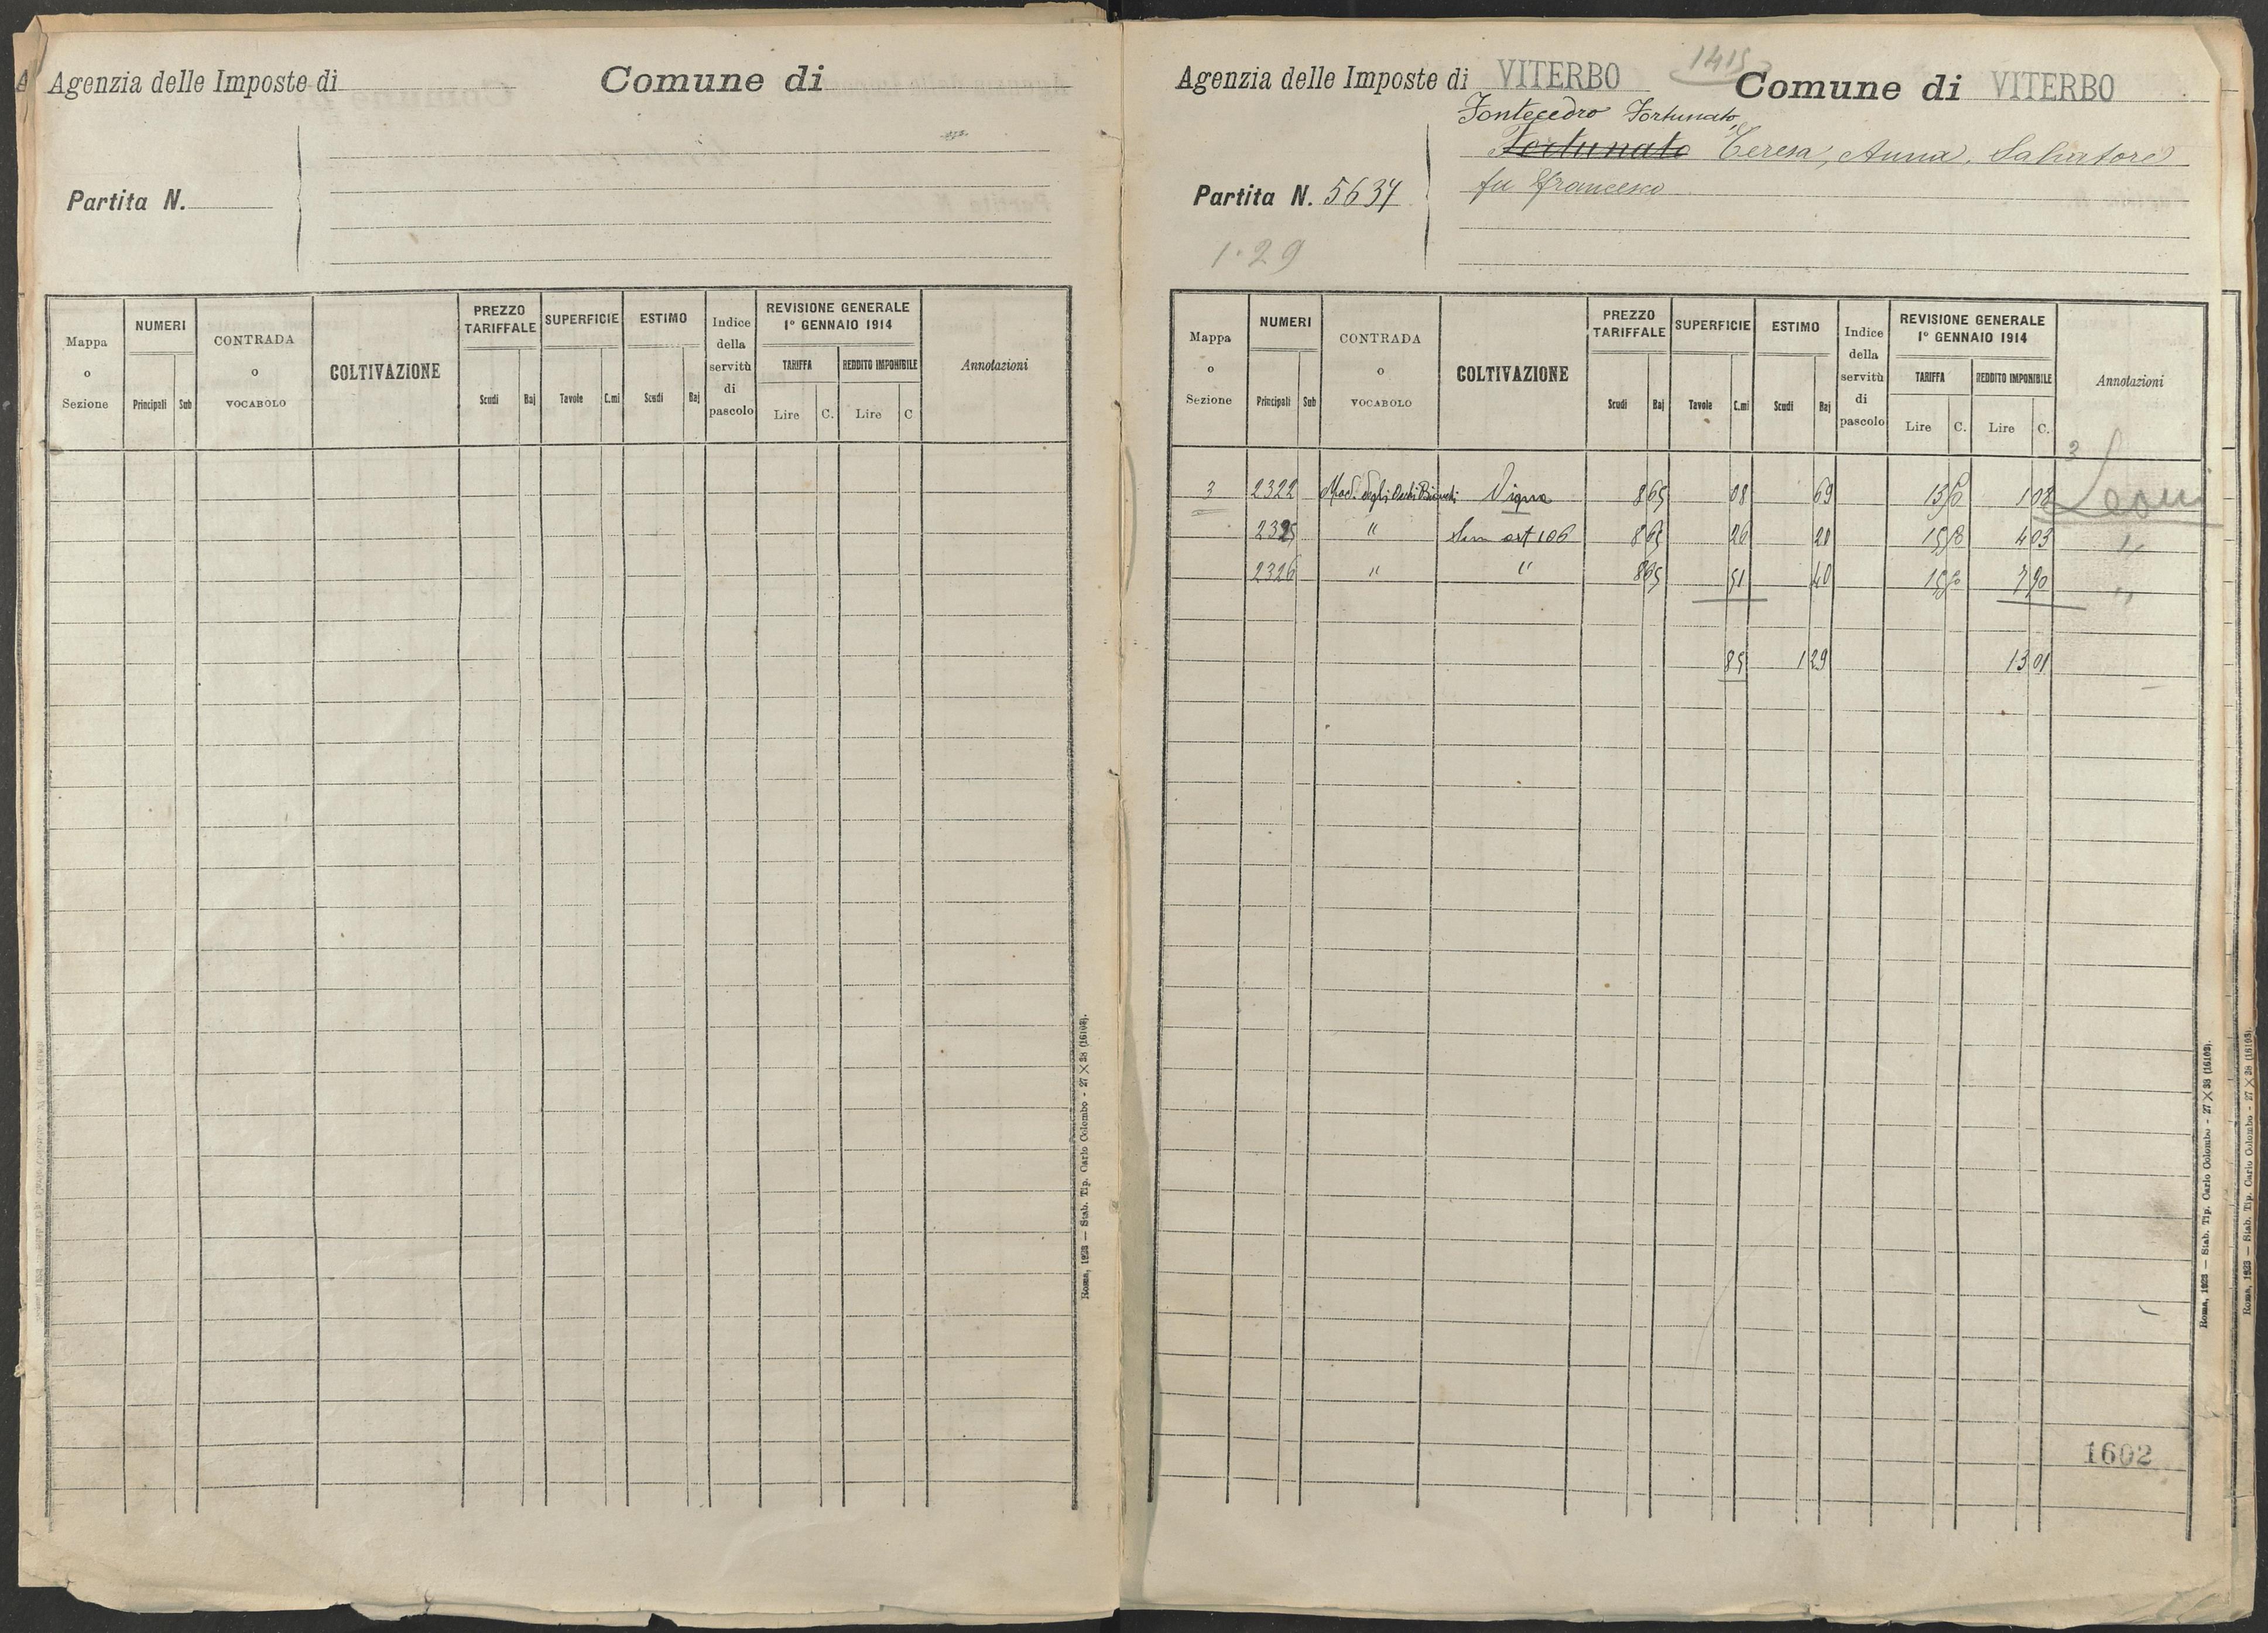 Agenzia delle Imposte di
Comune di
Partita N.
Mappa o Sezione
NUMERI
Principali
Sub
CONTRADA o VOCABOLO
COLTIVAZIONE
PREZZO TARIFFALE
Scudi
Baj
SUPERFICIE
Tavole
C.mi
ESTIMO
Scudi
Baj
Indice della servitù di pascolo
REVISIONE GENERALE
1° GENNAIO 1914
TARIFFA
REDDITO IMPONIBILE
Lire
C.
Lire
C
Annotazioni
Roma, 1923 — Stab. Tip. Carlo Colombo - 27 X 38 (16193).
Agenzia delle Imposte di VITERBO
1415
Comune di VITERBO
Fontecedro Fortunato,
Fortunato Teresa, Anna, Salvatore
Partita N. 5637
fu Francesco
1.29
Mappa o Sezione
NUMERI
Principali
Sub
CONTRADA o VOCABOLO
COLTIVAZIONE
PREZZO TARIFFALE
Scudi
Baj
SUPERFICIE
Tavole
C.mi
ESTIMO
Scudi
Baj
Indice della servitù di pascolo
REVISIONE GENERALE
1° GENNAIO 1914
TARIFFA
REDDITO IMPONIBILE
Lire
C.
Lire
C.
Annotazioni
3 2322 Mad. degli Occhi Bianchi Vigna 8 65 08 69 1 08
2325 " Sem art 106 8 65 26 20 4 03 "
2326 " " 8 65 51 40 7 90 "
85 1 29 13 01
1602
Roma, 1923 — Stab. Tip. Carlo Colombo - 27 X 38 (16193).
Roma, 1923 — Stab. Tip. Carlo Colombo - 27 X 38 (16193).